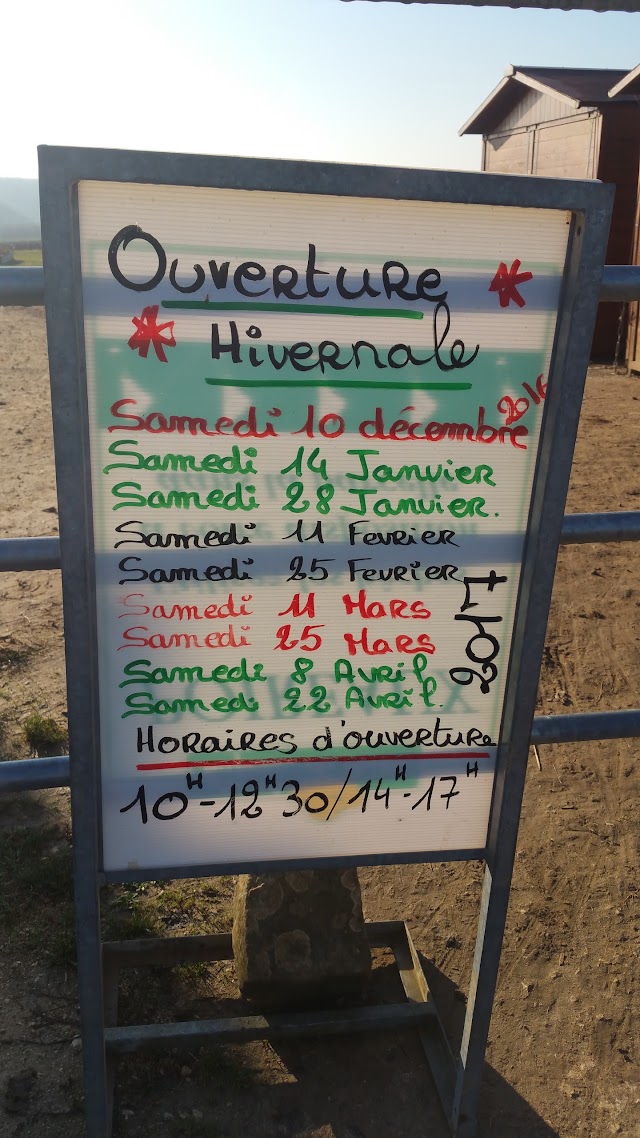 Ouverture
* Hivernale *
Samedi 10 décembre 2016
Samedi 14 Janvier
Samedi 28 Janvier.
Samedi 11 Fevrier
Samedi 25 Fevrier
Samedi 11 Mars
Samedi 25 Mars
Samedi 8 Avril
Samedi 22 Avril.
2017
Horaires d'ouverture
10H-12H30/14H-17H